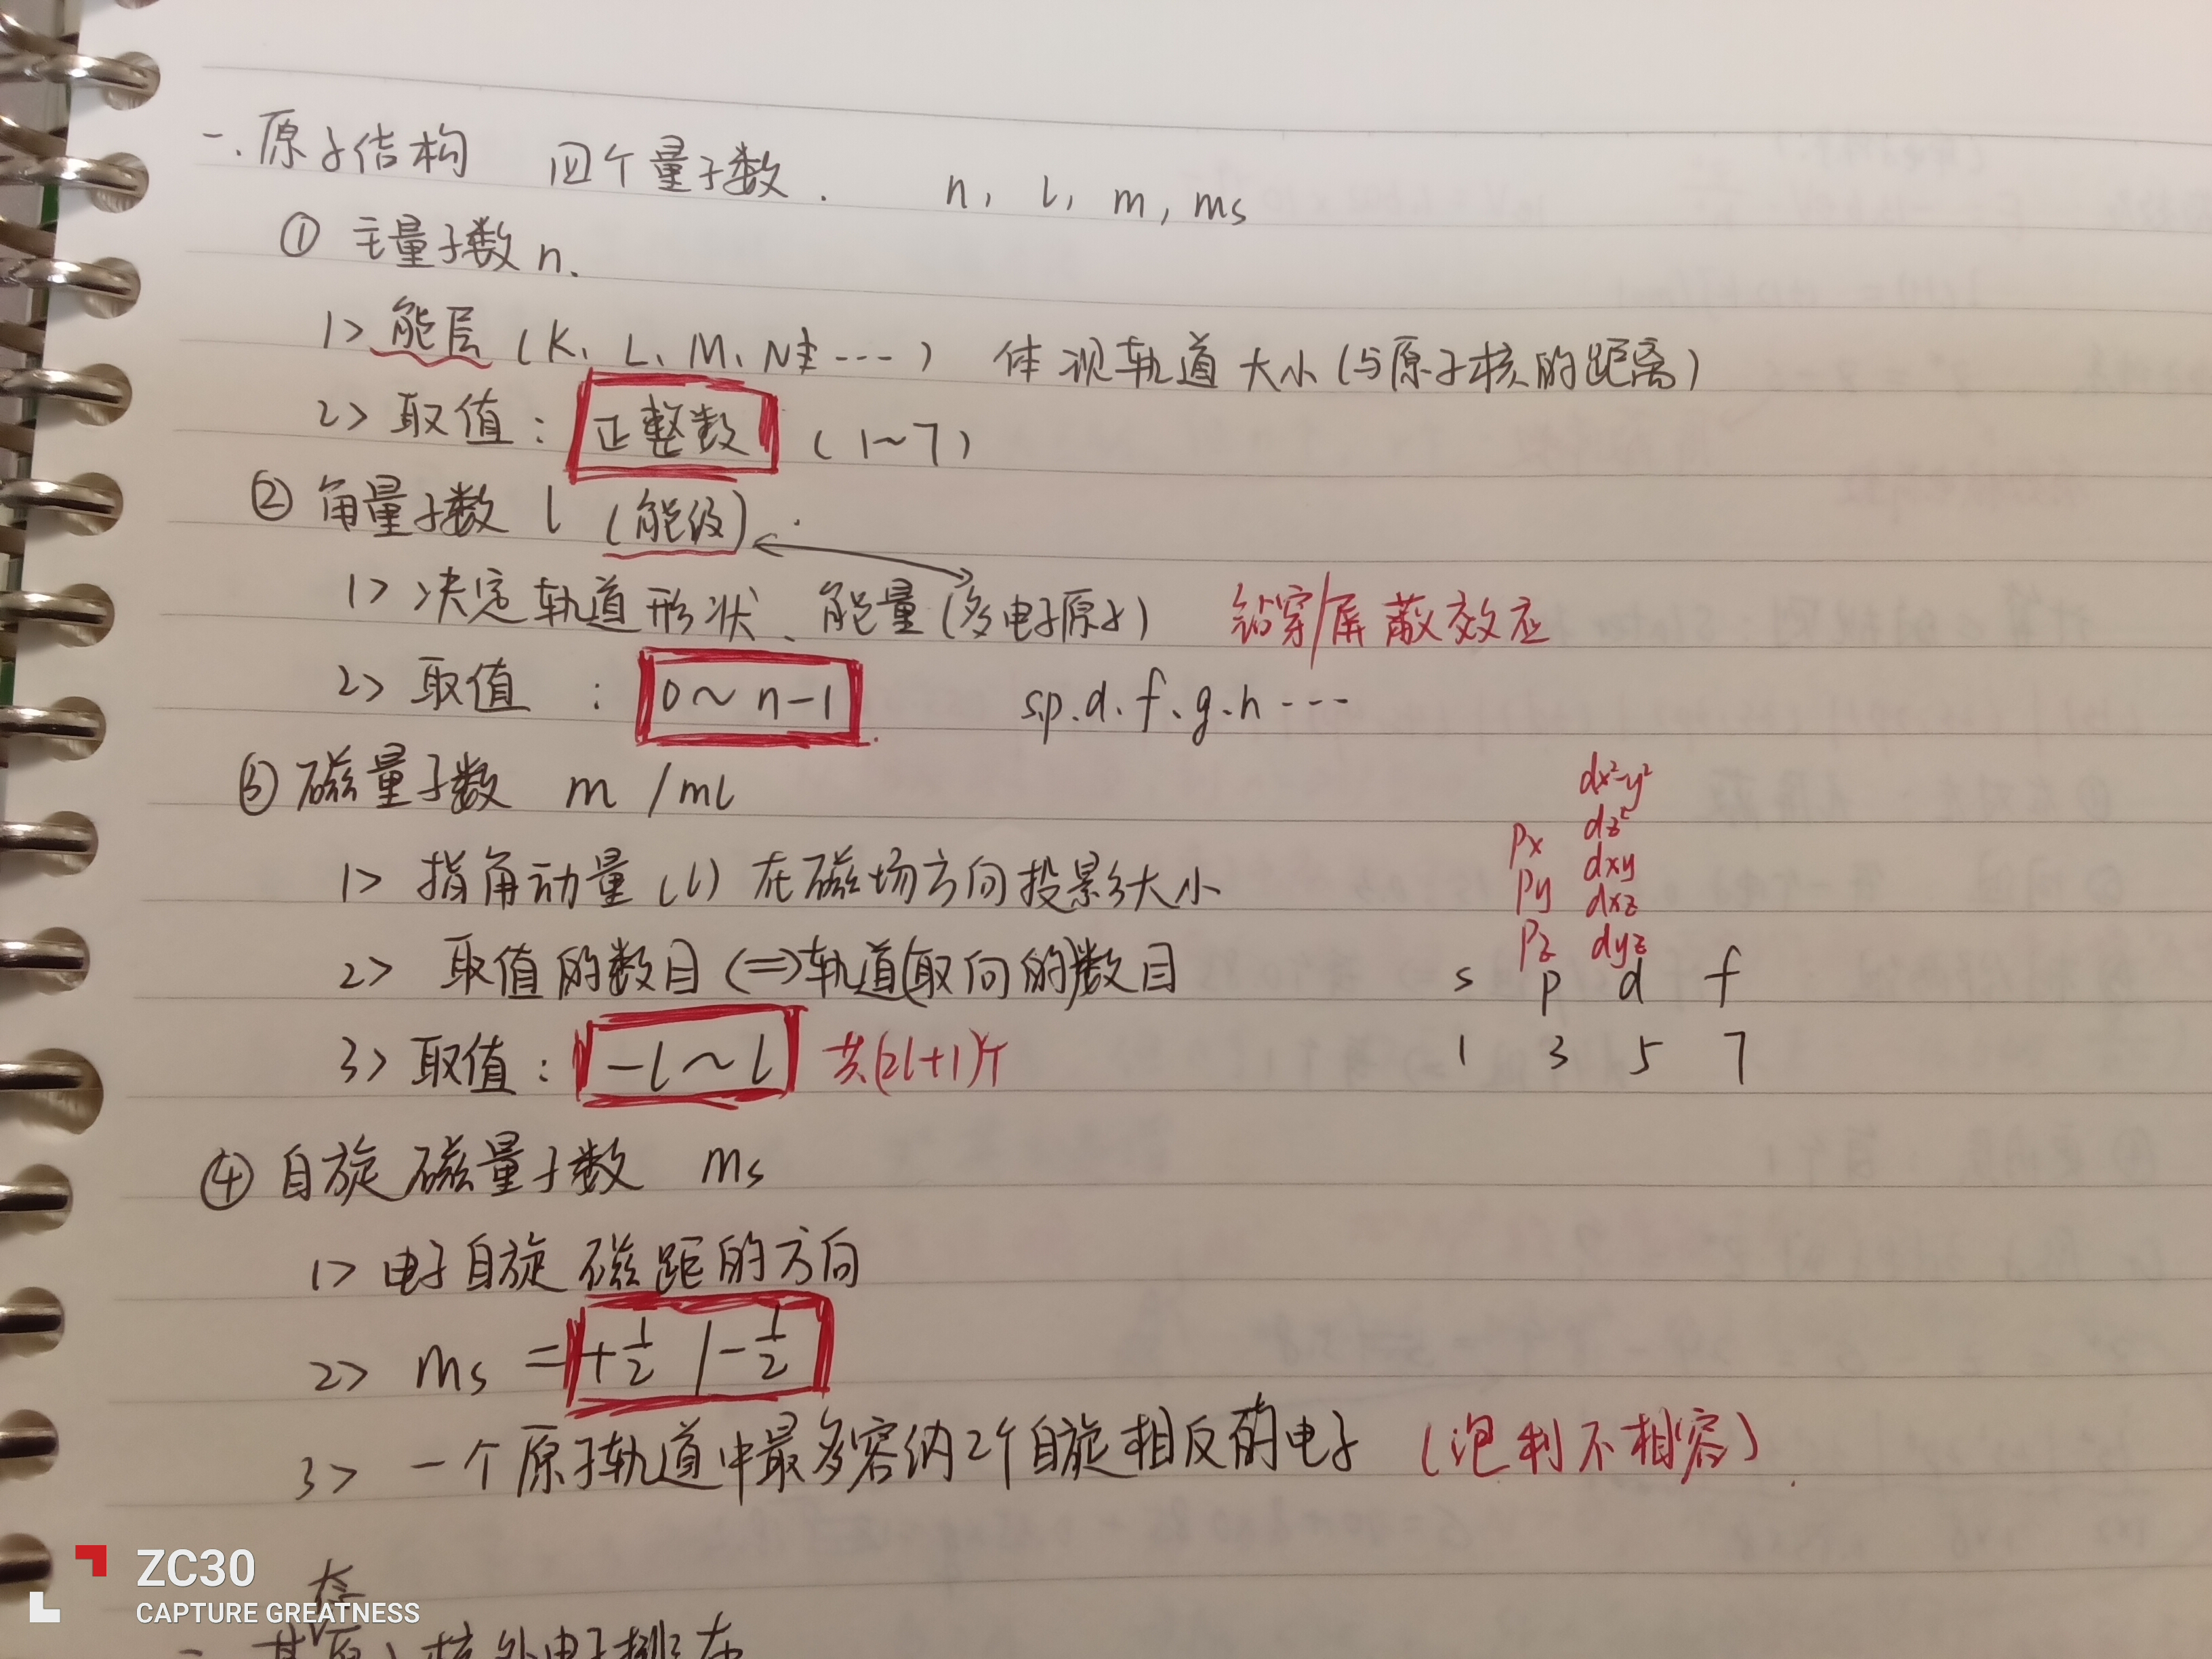 一.原子结构 四个量子数. n, l, m, ms
① 主量子数 n.
1> 能层 (K、L、M、N …) 体现轨道大小(与原子核的距离)
2> 取值: 正整数 (1~7)
② 角量子数 l (能级).
1> 决定轨道形状、能量(多电子原子) 钻穿/屏蔽效应
2> 取值 : 0~n-1 s.p.d.f.g.h…
③ 磁量子数 m /ml
dx²-y²
px dz²
py dxy
pz dxz
dyz
1> 指角动量(l)在磁场方向投影大小
2> 取值的数目<=>轨道(取向的)数目 s p d f
3> 取值: -l~l 共(2l+1)个 1 3 5 7
④ 自旋磁量子数 ms
1> 电子自旋磁距的方向
2> ms = +1/2 /-1/2
3> 一个原子轨道中最多容纳2个自旋相反的电子 (泡利不相容).
ZC30
CAPTURE GREATNESS
态
基原子核外电子排布